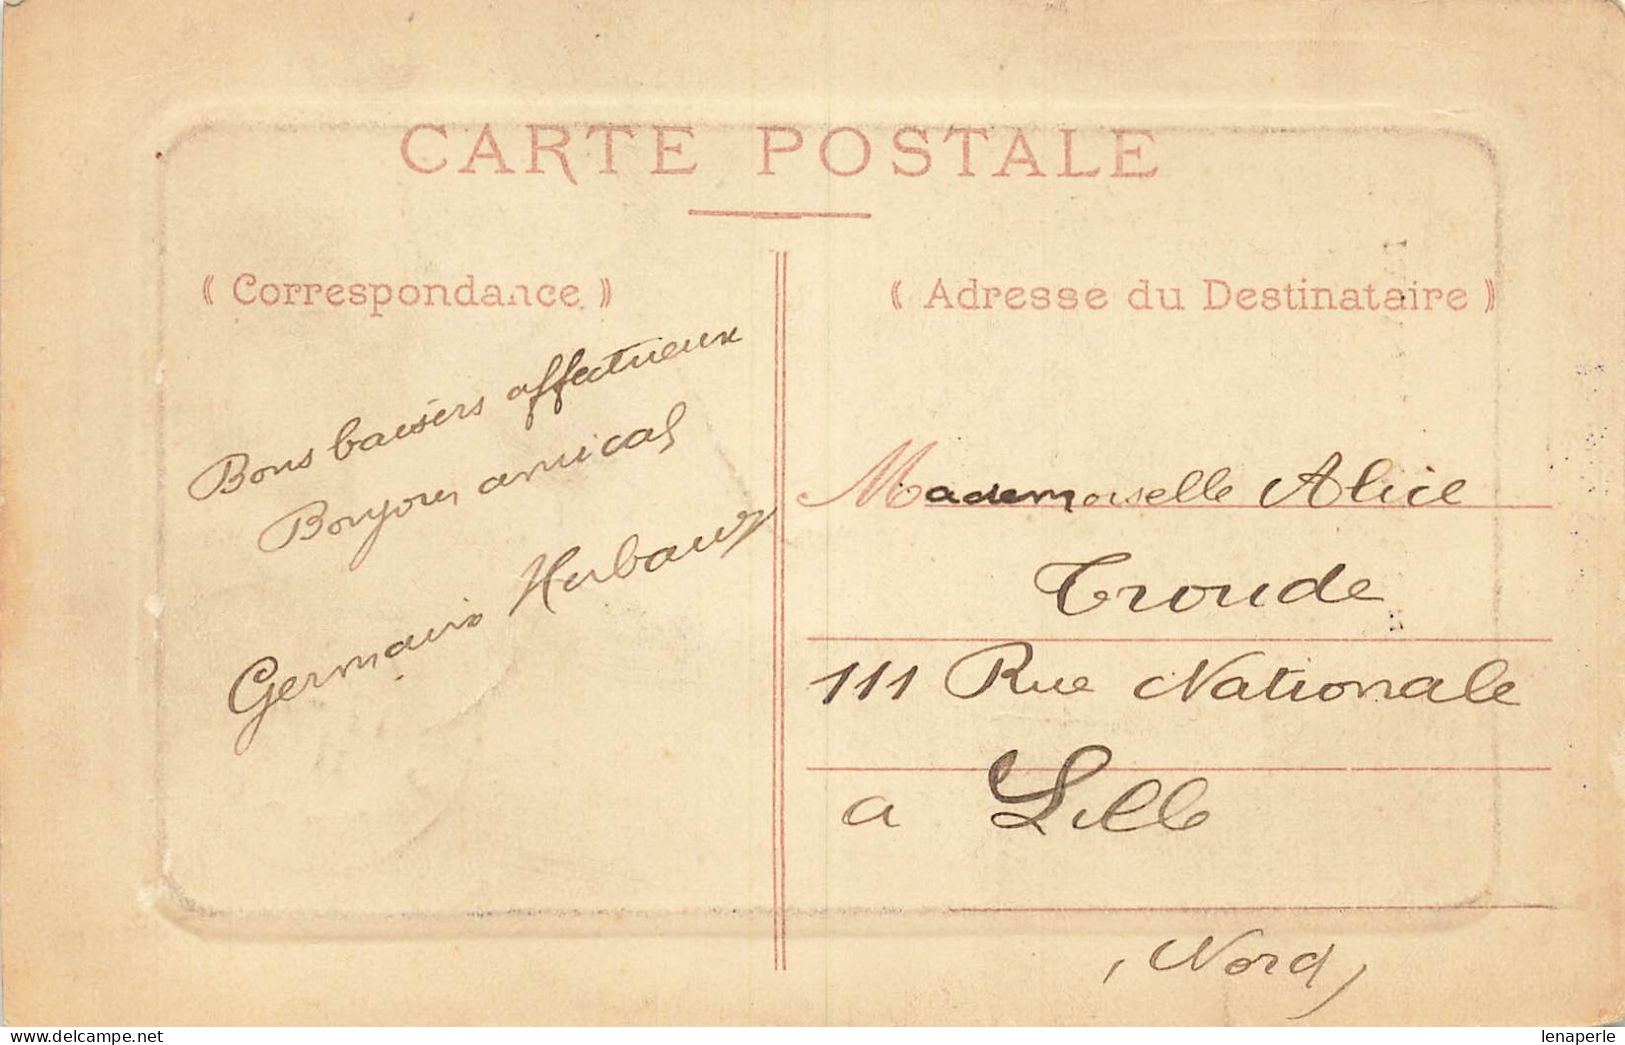 CARTE POSTALE
⸨ Correspondance ⸩
⸨ Adresse du Destinataire ⸩
Bons baisers affectueux
Bonjour amical
Germaine Herbaux
Mademoiselle Alice
Troude
111 Rue Nationale
a Lille
(Nord)
delcampe.net
lenaperle